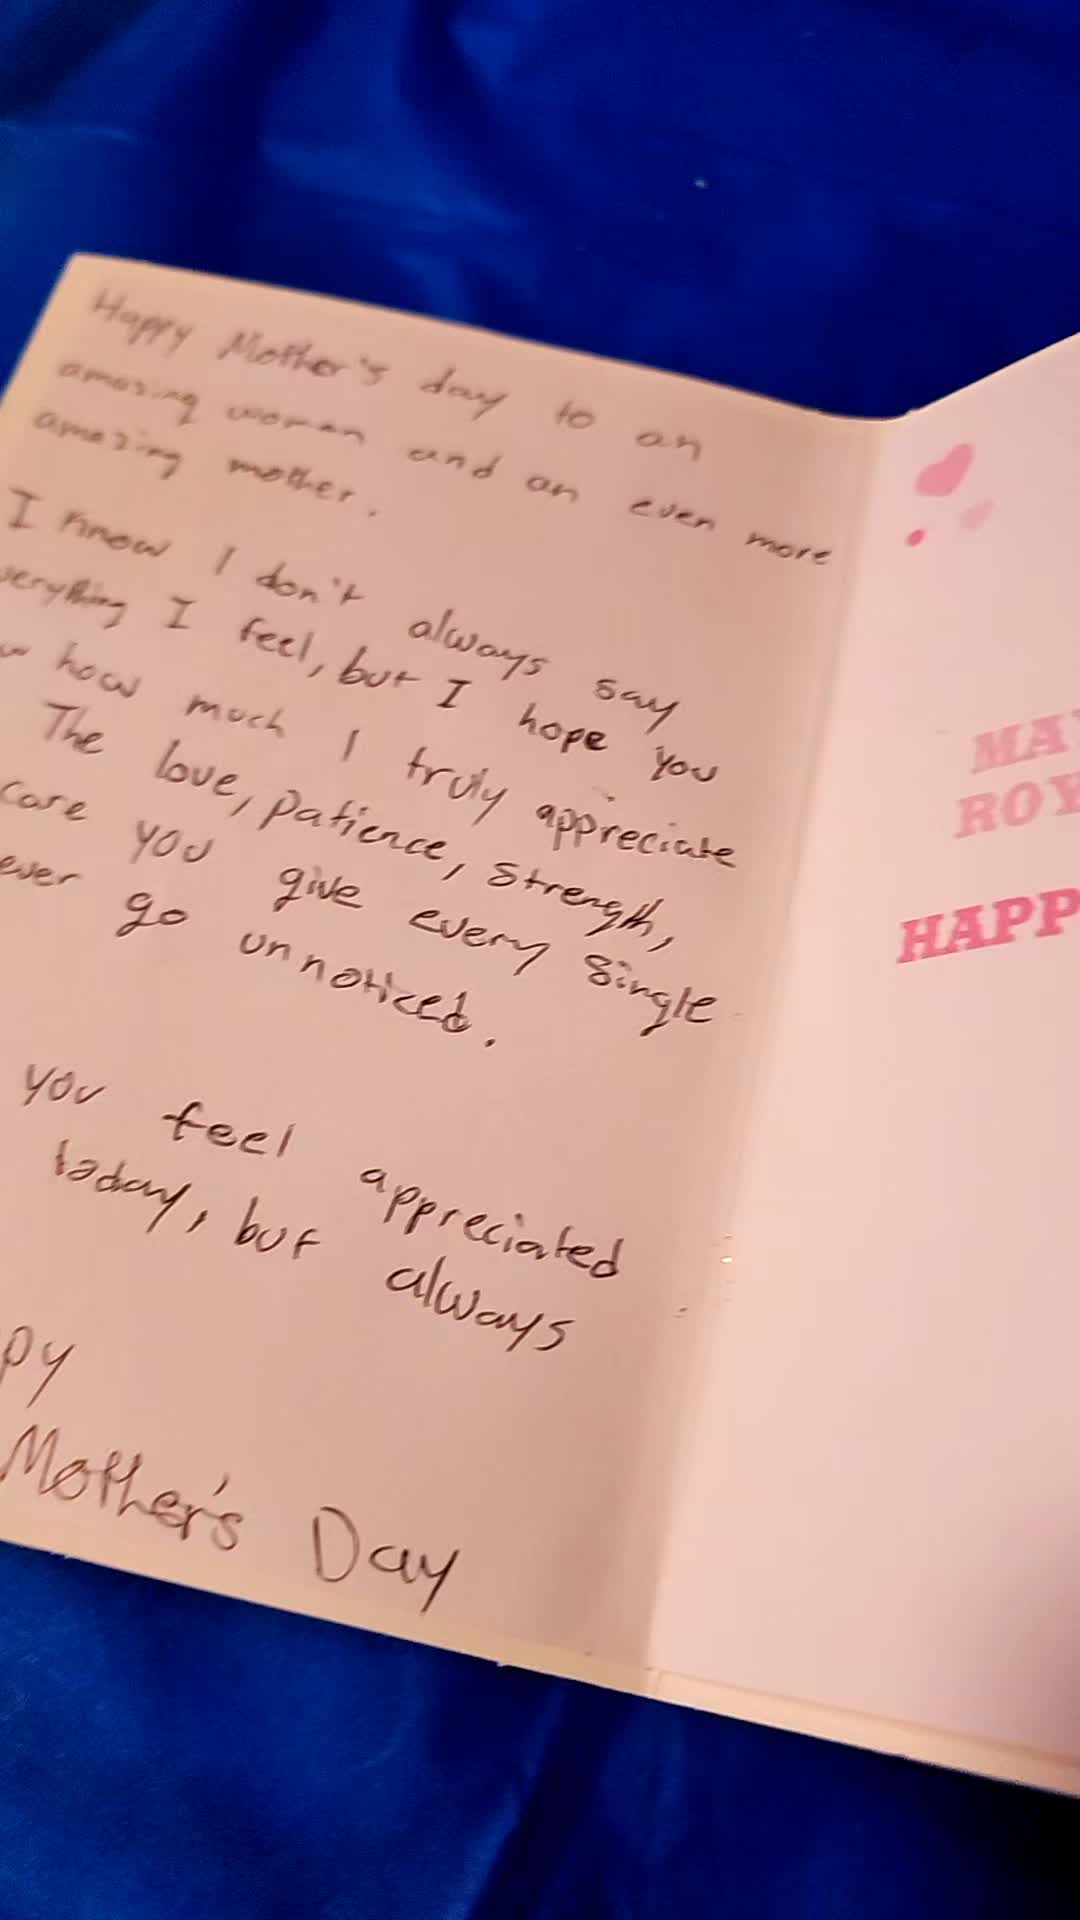 Happy Mother's day to an
amazing woman and an even more
amazing mother.
I know I don't always say
everything I feel, but I hope you
how much I truly appreciate
The love, patience, strength,
care you give every single
ever go unnoticed.
you feel appreciated
today, but always
ppy
Mother's Day
MAY
ROY
HAPP